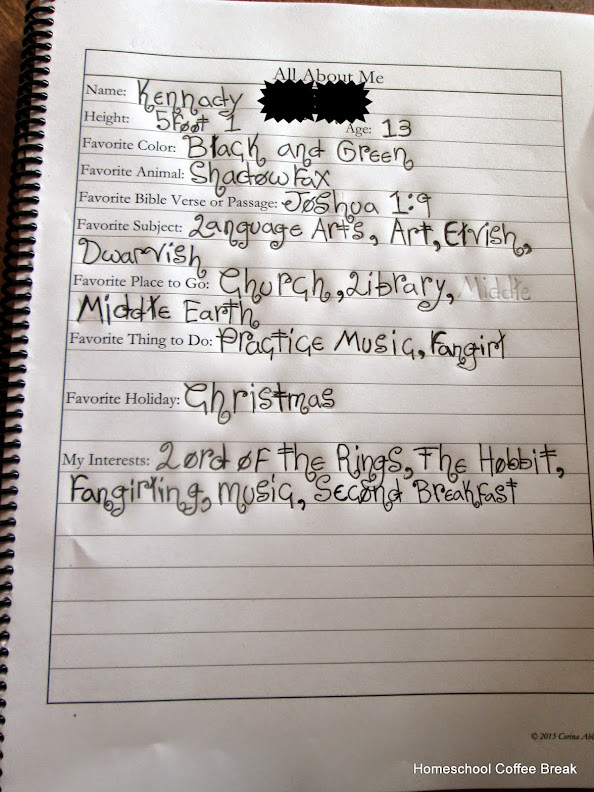 All About Me
Name: Kennady
Height: 5foot 1 Age: 13
Favorite Color: Black and Green
Favorite Animal: Shadowfax
Favorite Bible Verse or Passage: Joshua 1:9
Favorite Subject: Language Arts, Art, Elvish,
Dwarvish
Favorite Place to Go: Church, Library, Middle
Middle Earth
Favorite Thing to Do: Practice Music, Fangirl
Favorite Holiday: Christmas
My Interests: Lord of the Rings, The Hobbit,
Fangirling, Music, Second Breakfast
© 2013 Corina
Homeschool Coffee Break